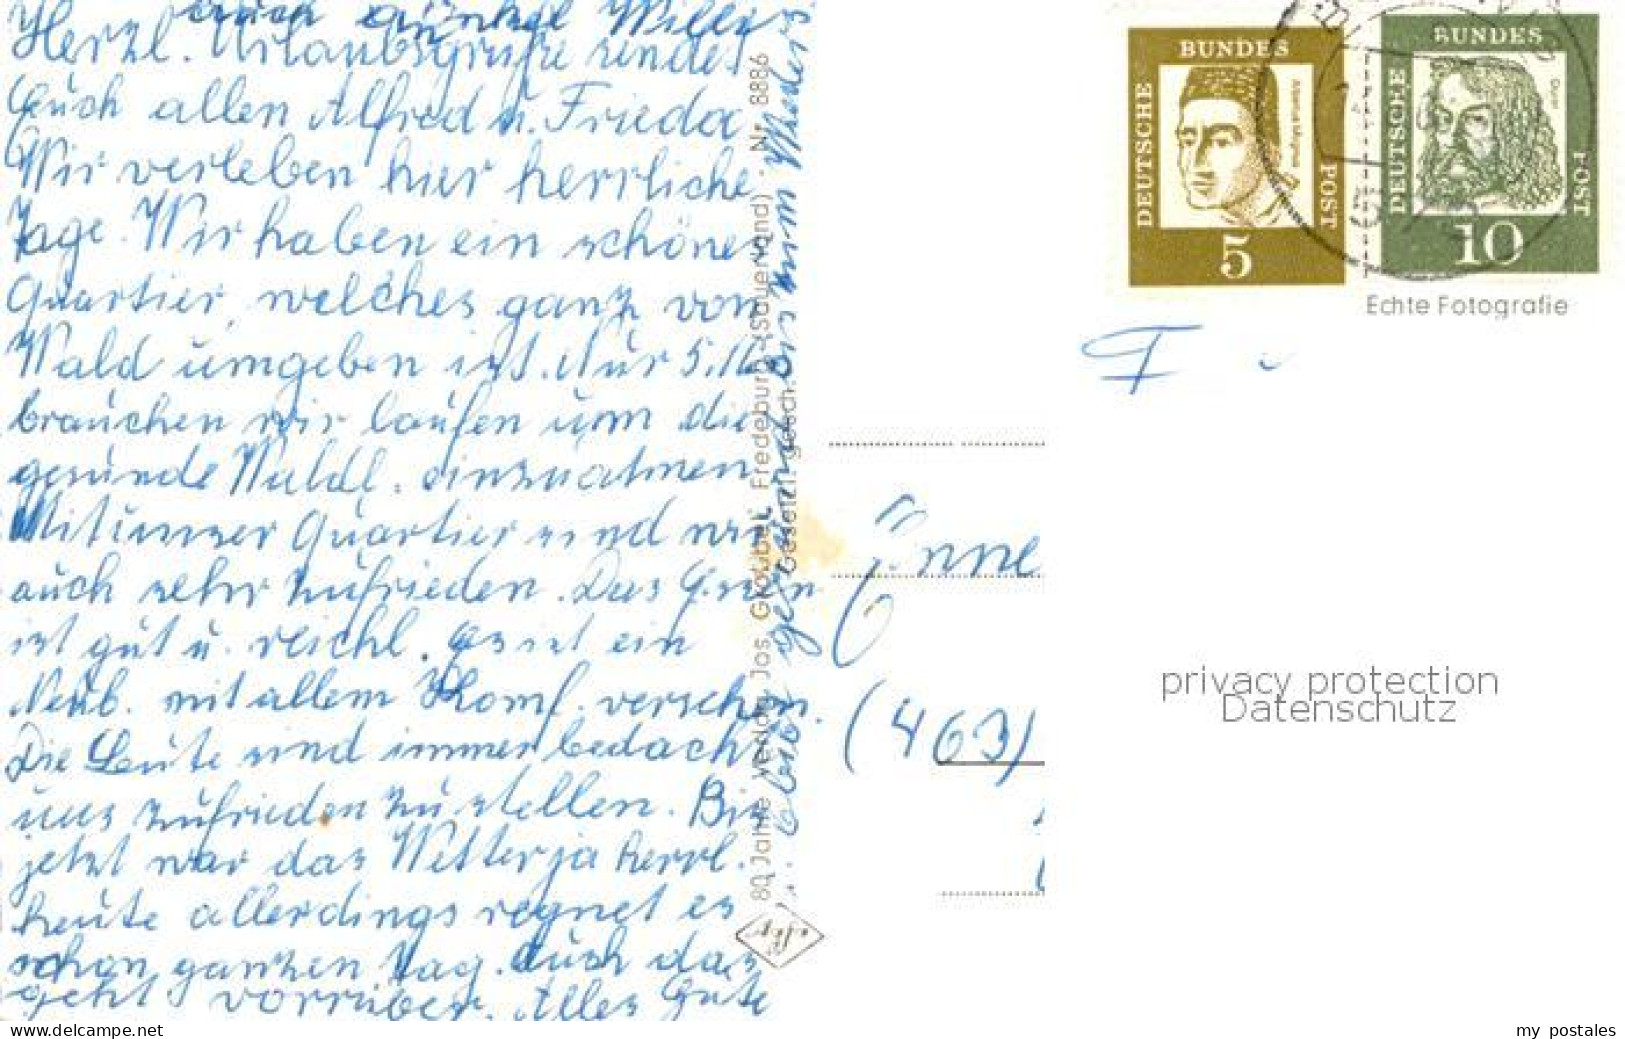 auch Onkel Willi
Herzl. Urlaubsgrüße sendet
Euch allen Alfred u. Frieda
Wir verleben hier herrliche
Tage. Wir haben ein schönes
Quartier, welches ganz von
Wald umgeben ist. Nur 5.M
brauchen wir laufen um die
gesunde Waldl. einzuatmen
Mit unser Quartier sind wir
auch sehr zufrieden. Das Essen
ist gut u. reichl. Es ist ein
Neub. mit allem Komf. versehen.
Die Leute sind immer bedacht
uns zufrieden zu stellen. Bis
jetzt war das Wetter ja herrl.
heute allerdings regnet es
schon ganzen Tag. Auch das
geht vorrüber. Alles Gute
u. bleibt gesund bis zum Wieders.
80 Jahre Verlag Jos. Grobbel, Fredeburg (Sauerland) · Nr. 8886
Gesetzl. gesch.
DEUTSCHE BUNDES POST
Albertus Magnus
5
DEUTSCHE BUNDES POST
Dürer
10
Echte Fotografie
F
(463)
privacy protection
Datenschutz
www.delcampe.net
my_postales